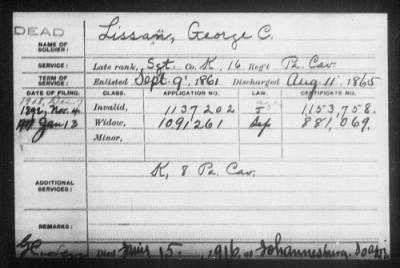 DEAD
NAME OF SOLDIER: Lissam, George C.
SERVICE: Late rank, Sgt. Co. K, 16 Reg't Pa. Cav.
TERM OF SERVICE: Enlisted Sept. 9, 1861 Discharged Aug. 11, 1865
DATE OF FILING. CLASS. APPLICATION NO. LAW. CERTIFICATE NO.
1908, Dec. 7
1892, Nov. 4. Invalid, 1137202 I 1,153,758.
Jan 13 Widow, 1091,261 881,069.
Minor,
ADDITIONAL SERVICES: K, 8 Pa. Cav.
REMARKS:
Died 15, 1916, at Johannesburg,